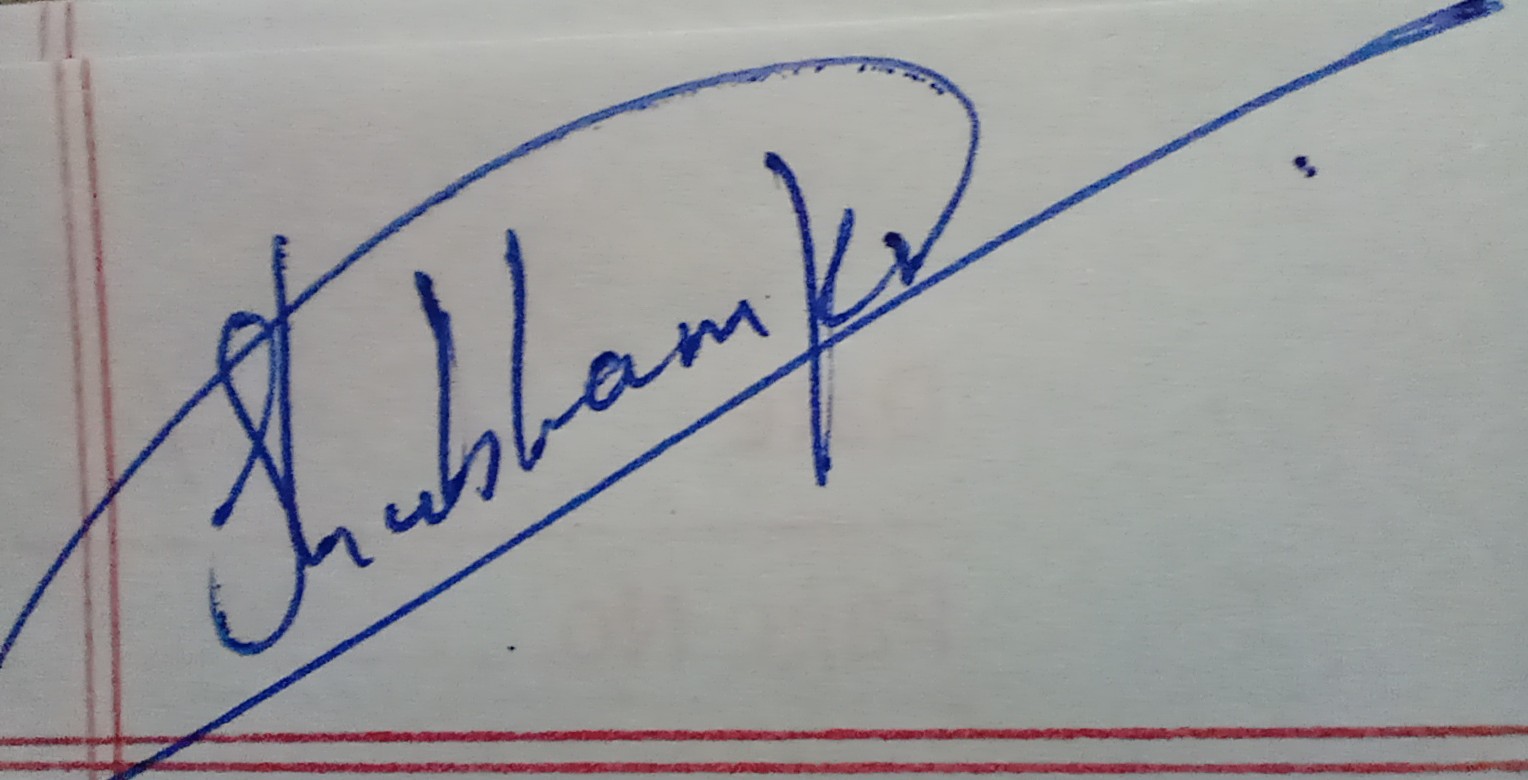 Shubham Kr